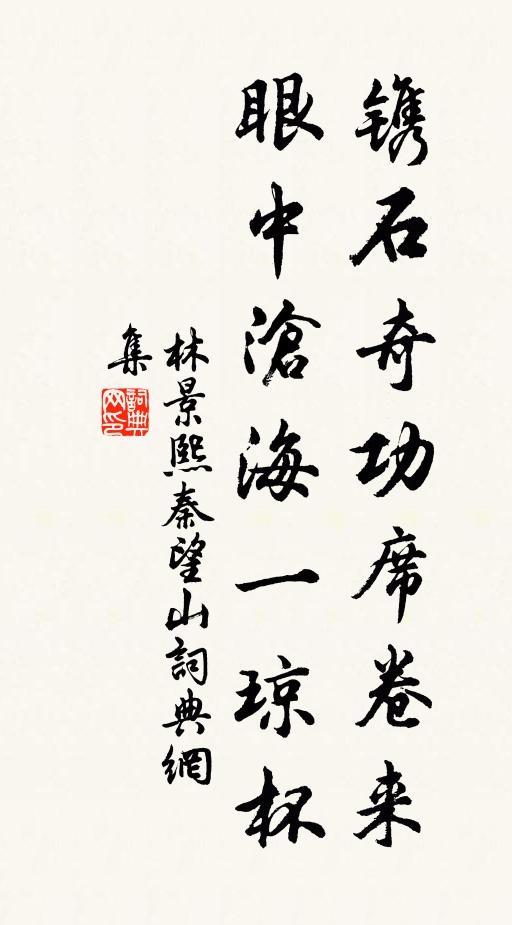 镌石奇功席卷来
眼中滄海一琼杯
林景熙秦望山詞典網
集
詞典
网印